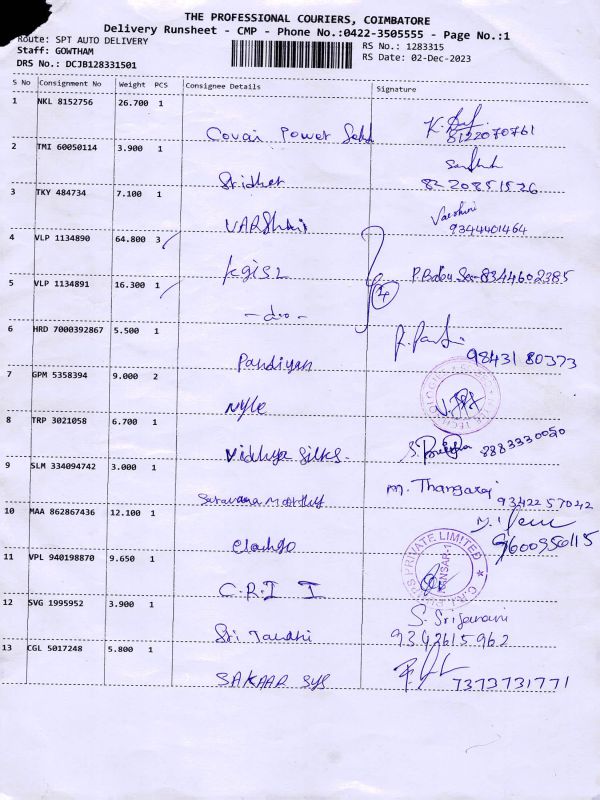 THE PROFESSIONAL COURIERS, COIMBATORE
Delivery Runsheet - CMP - Phone No.:0422-3505555 - Page No.:1
Route: SPT AUTO DELIVERY
Staff: GOWTHAM
DRS No.: DCJB128331501
RS No.: 1283315
RS Date: 02-Dec-2023
S No Consignment No Weight PCS Consignee Details Signature
1 NKL 8152756 26.700 1
Covai Power
8122070761
2 TMI 60050114 3.900 1
Sridher
8220851526
3 TKY 484734 7.100 1
Varshini
9344401464
4 VLP 1134890 64.800 3
KGISL
8344602385
5 VLP 1134891 16.300 1
4
- do -
6 HRD 7000392867 5.500 1
Pandiyan
98431 80373
7 GPM 5358394 9.000 2
Nyle
8 TRP 3021058 6.700 1
Vidhya Silks
8883330050
9 SLM 334094742 3.000 1
Saravana Moorthy
M. Thangaraj
9342257042
10 MAA 862867436 12.100 1
9600956115
11 VPL 940198870 9.650 1
C.R.I I
PRIVATE LIMITED
12 SVG 1995952 3.900 1
Sri
S. Srijanani
9342615962
13 CGL 5017248 5.800 1
SAKAAR SYS
7373731771